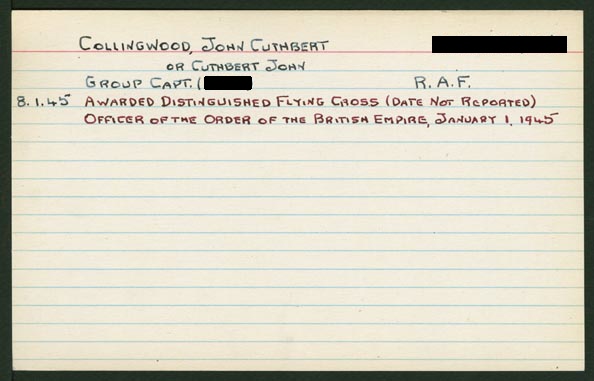 COLLINGWOOD, JOHN CUTHBERT
OR CUTHBERT JOHN
GROUP CAPT. ( R.A.F.
8.1.45 AWARDED DISTINGUISHED FLYING CROSS (DATE NOT REPORTED)
OFFICER OF THE ORDER OF THE BRITISH EMPIRE, JANUARY 1, 1945